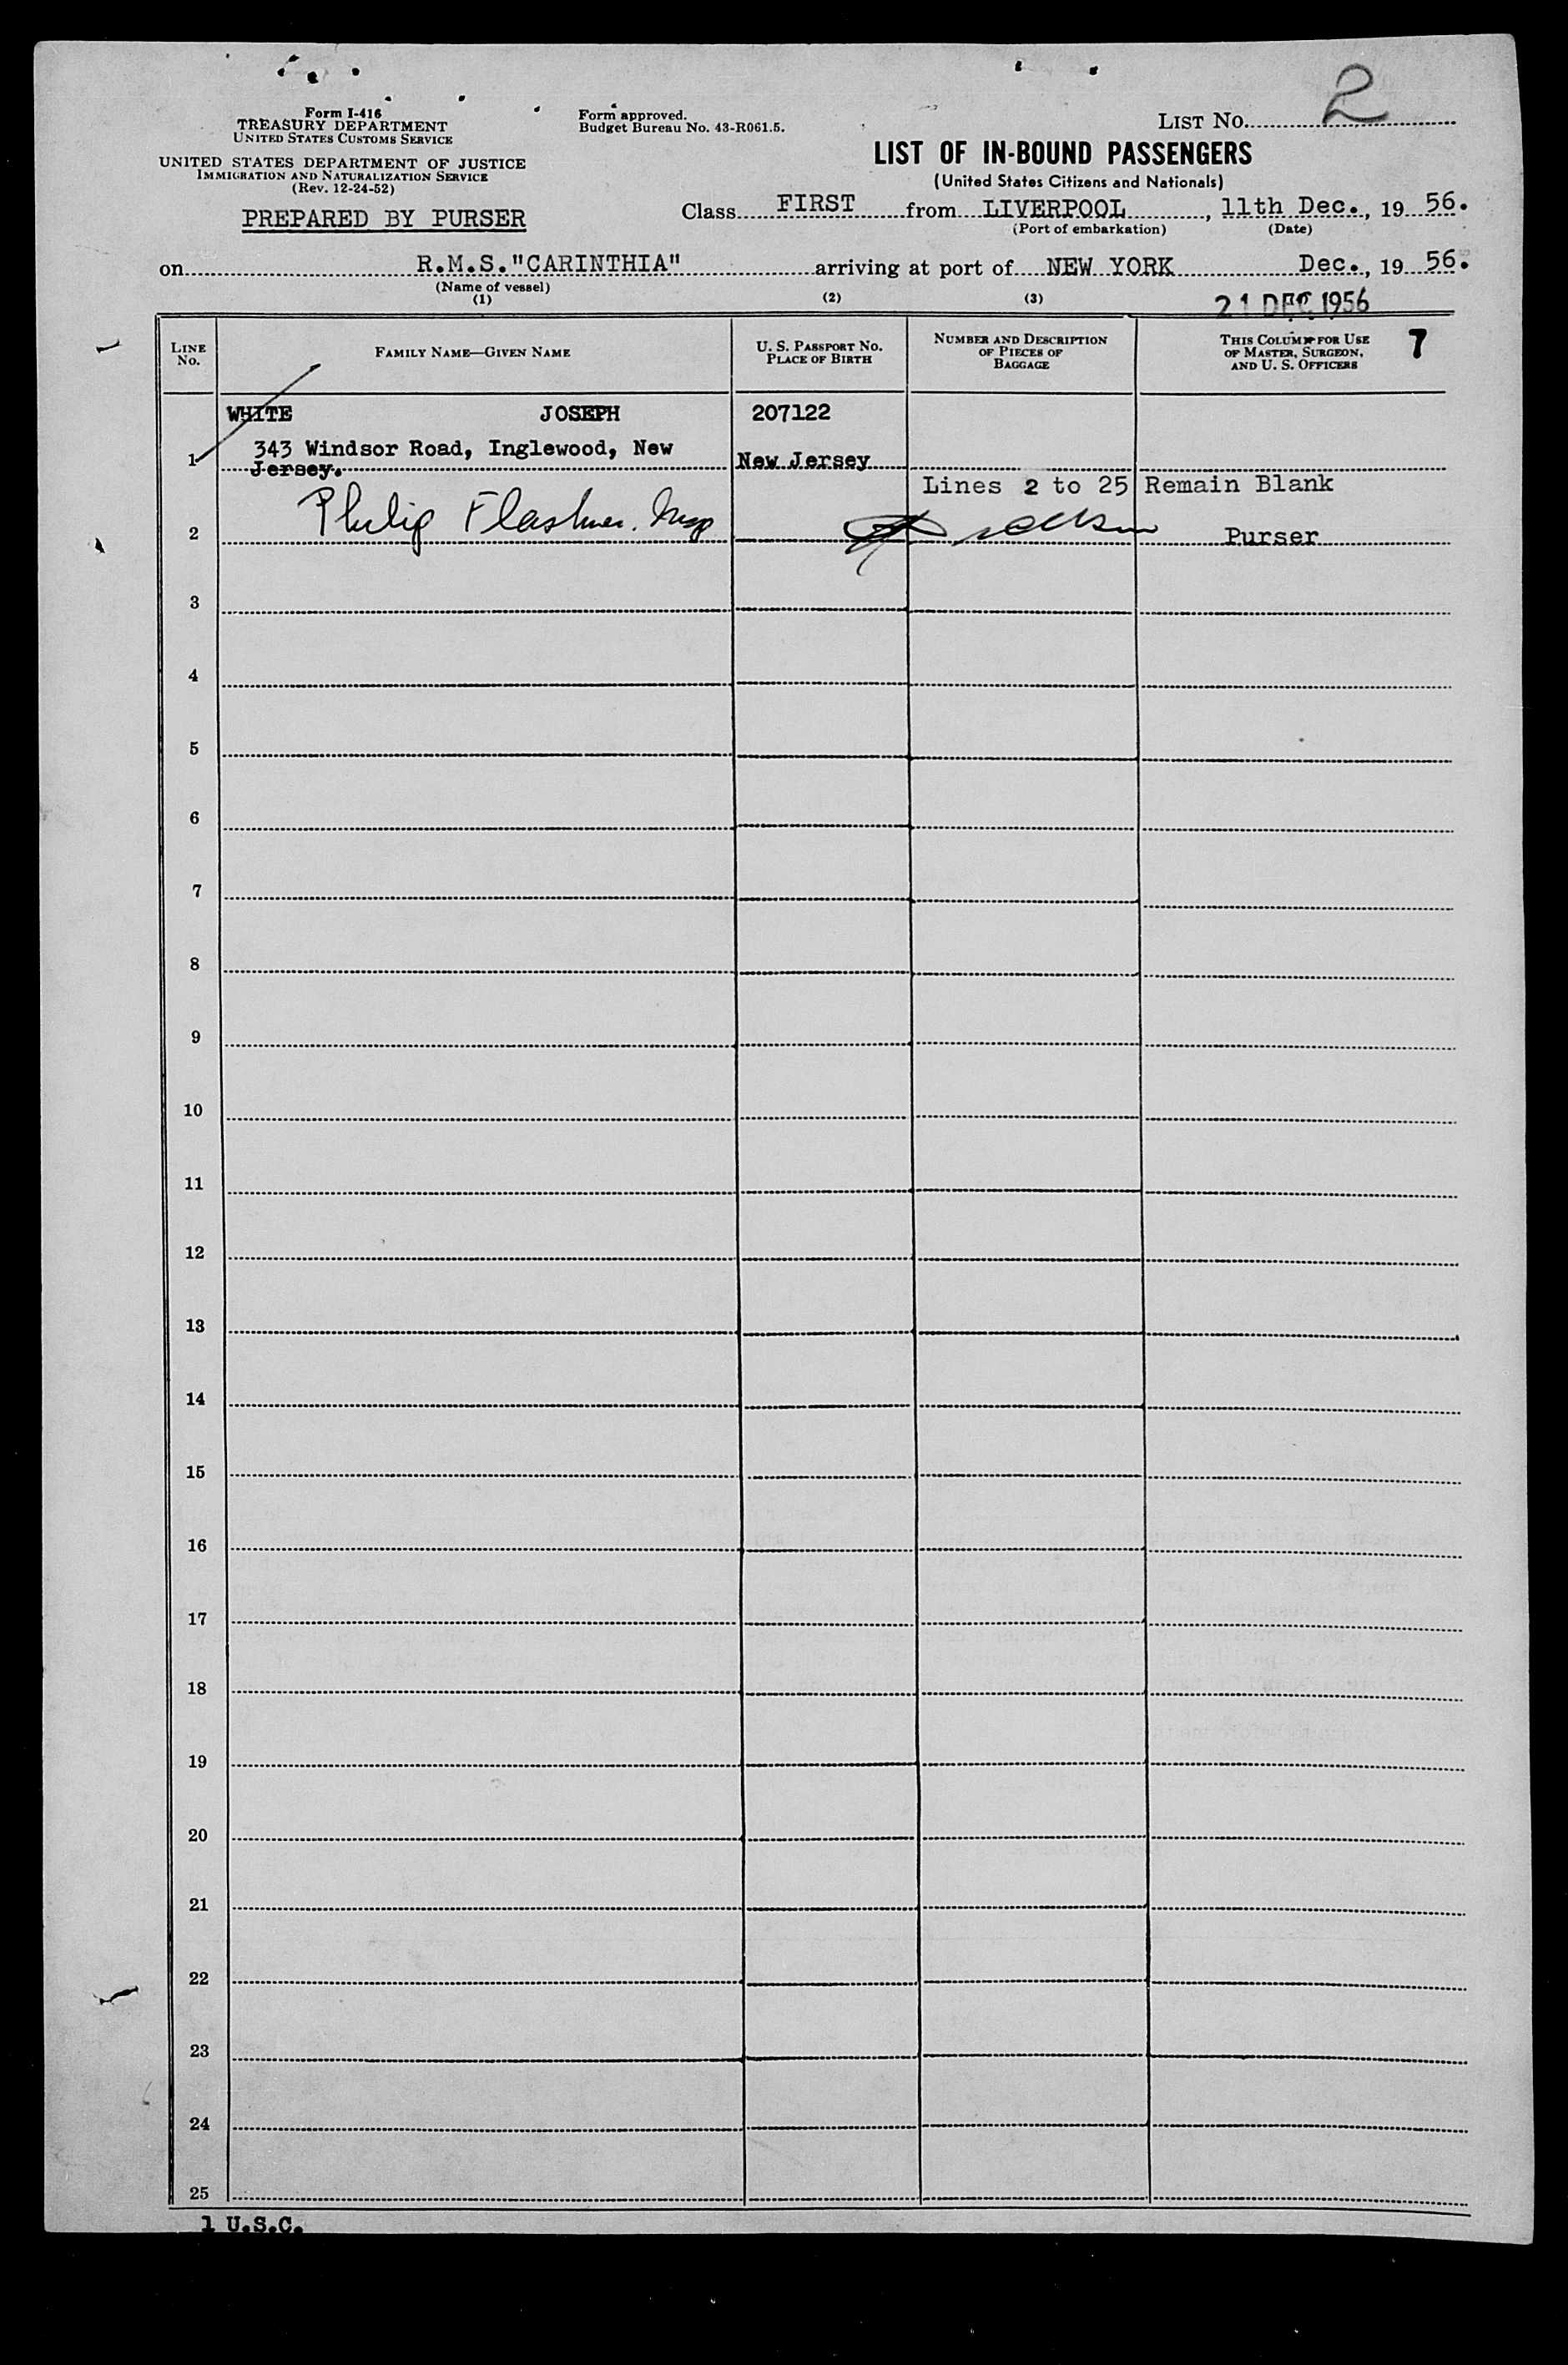 Form I-416
TREASURY DEPARTMENT
UNITED STATES CUSTOMS SERVICE
UNITED STATES DEPARTMENT OF JUSTICE
IMMIGRATION AND NATURALIZATION SERVICE
(Rev. 12-24-52)
PREPARED BY PURSER
Form approved.
Budget Bureau No. 43-R061.5.
LIST NO. 2
LIST OF IN-BOUND PASSENGERS
(United States Citizens and Nationals)
Class FIRST from LIVERPOOL, 11th Dec., 19 56.
(Port of embarkation) (Date)
on R.M.S."CARINTHIA" arriving at port of NEW YORK Dec., 19 56.
(Name of vessel)
(1) (2) (3) 21 DEC 1956
LINE NO.
FAMILY NAME—GIVEN NAME
U. S. PASSPORT NO.
PLACE OF BIRTH
NUMBER AND DESCRIPTION
OF PIECES OF
BAGGAGE
THIS COLUMN FOR USE
OF MASTER, SURGEON,
AND U. S. OFFICERS
7
WHITE JOSEPH 207122
1 343 Windsor Road, Inglewood, New
Jersey. New Jersey
Lines 2 to 25 Remain Blank
2 Philip Purser
3
4
5
6
7
8
9
10
11
12
13
14
15
16
17
18
19
20
21
22
23
24
25
1 U.S.C.